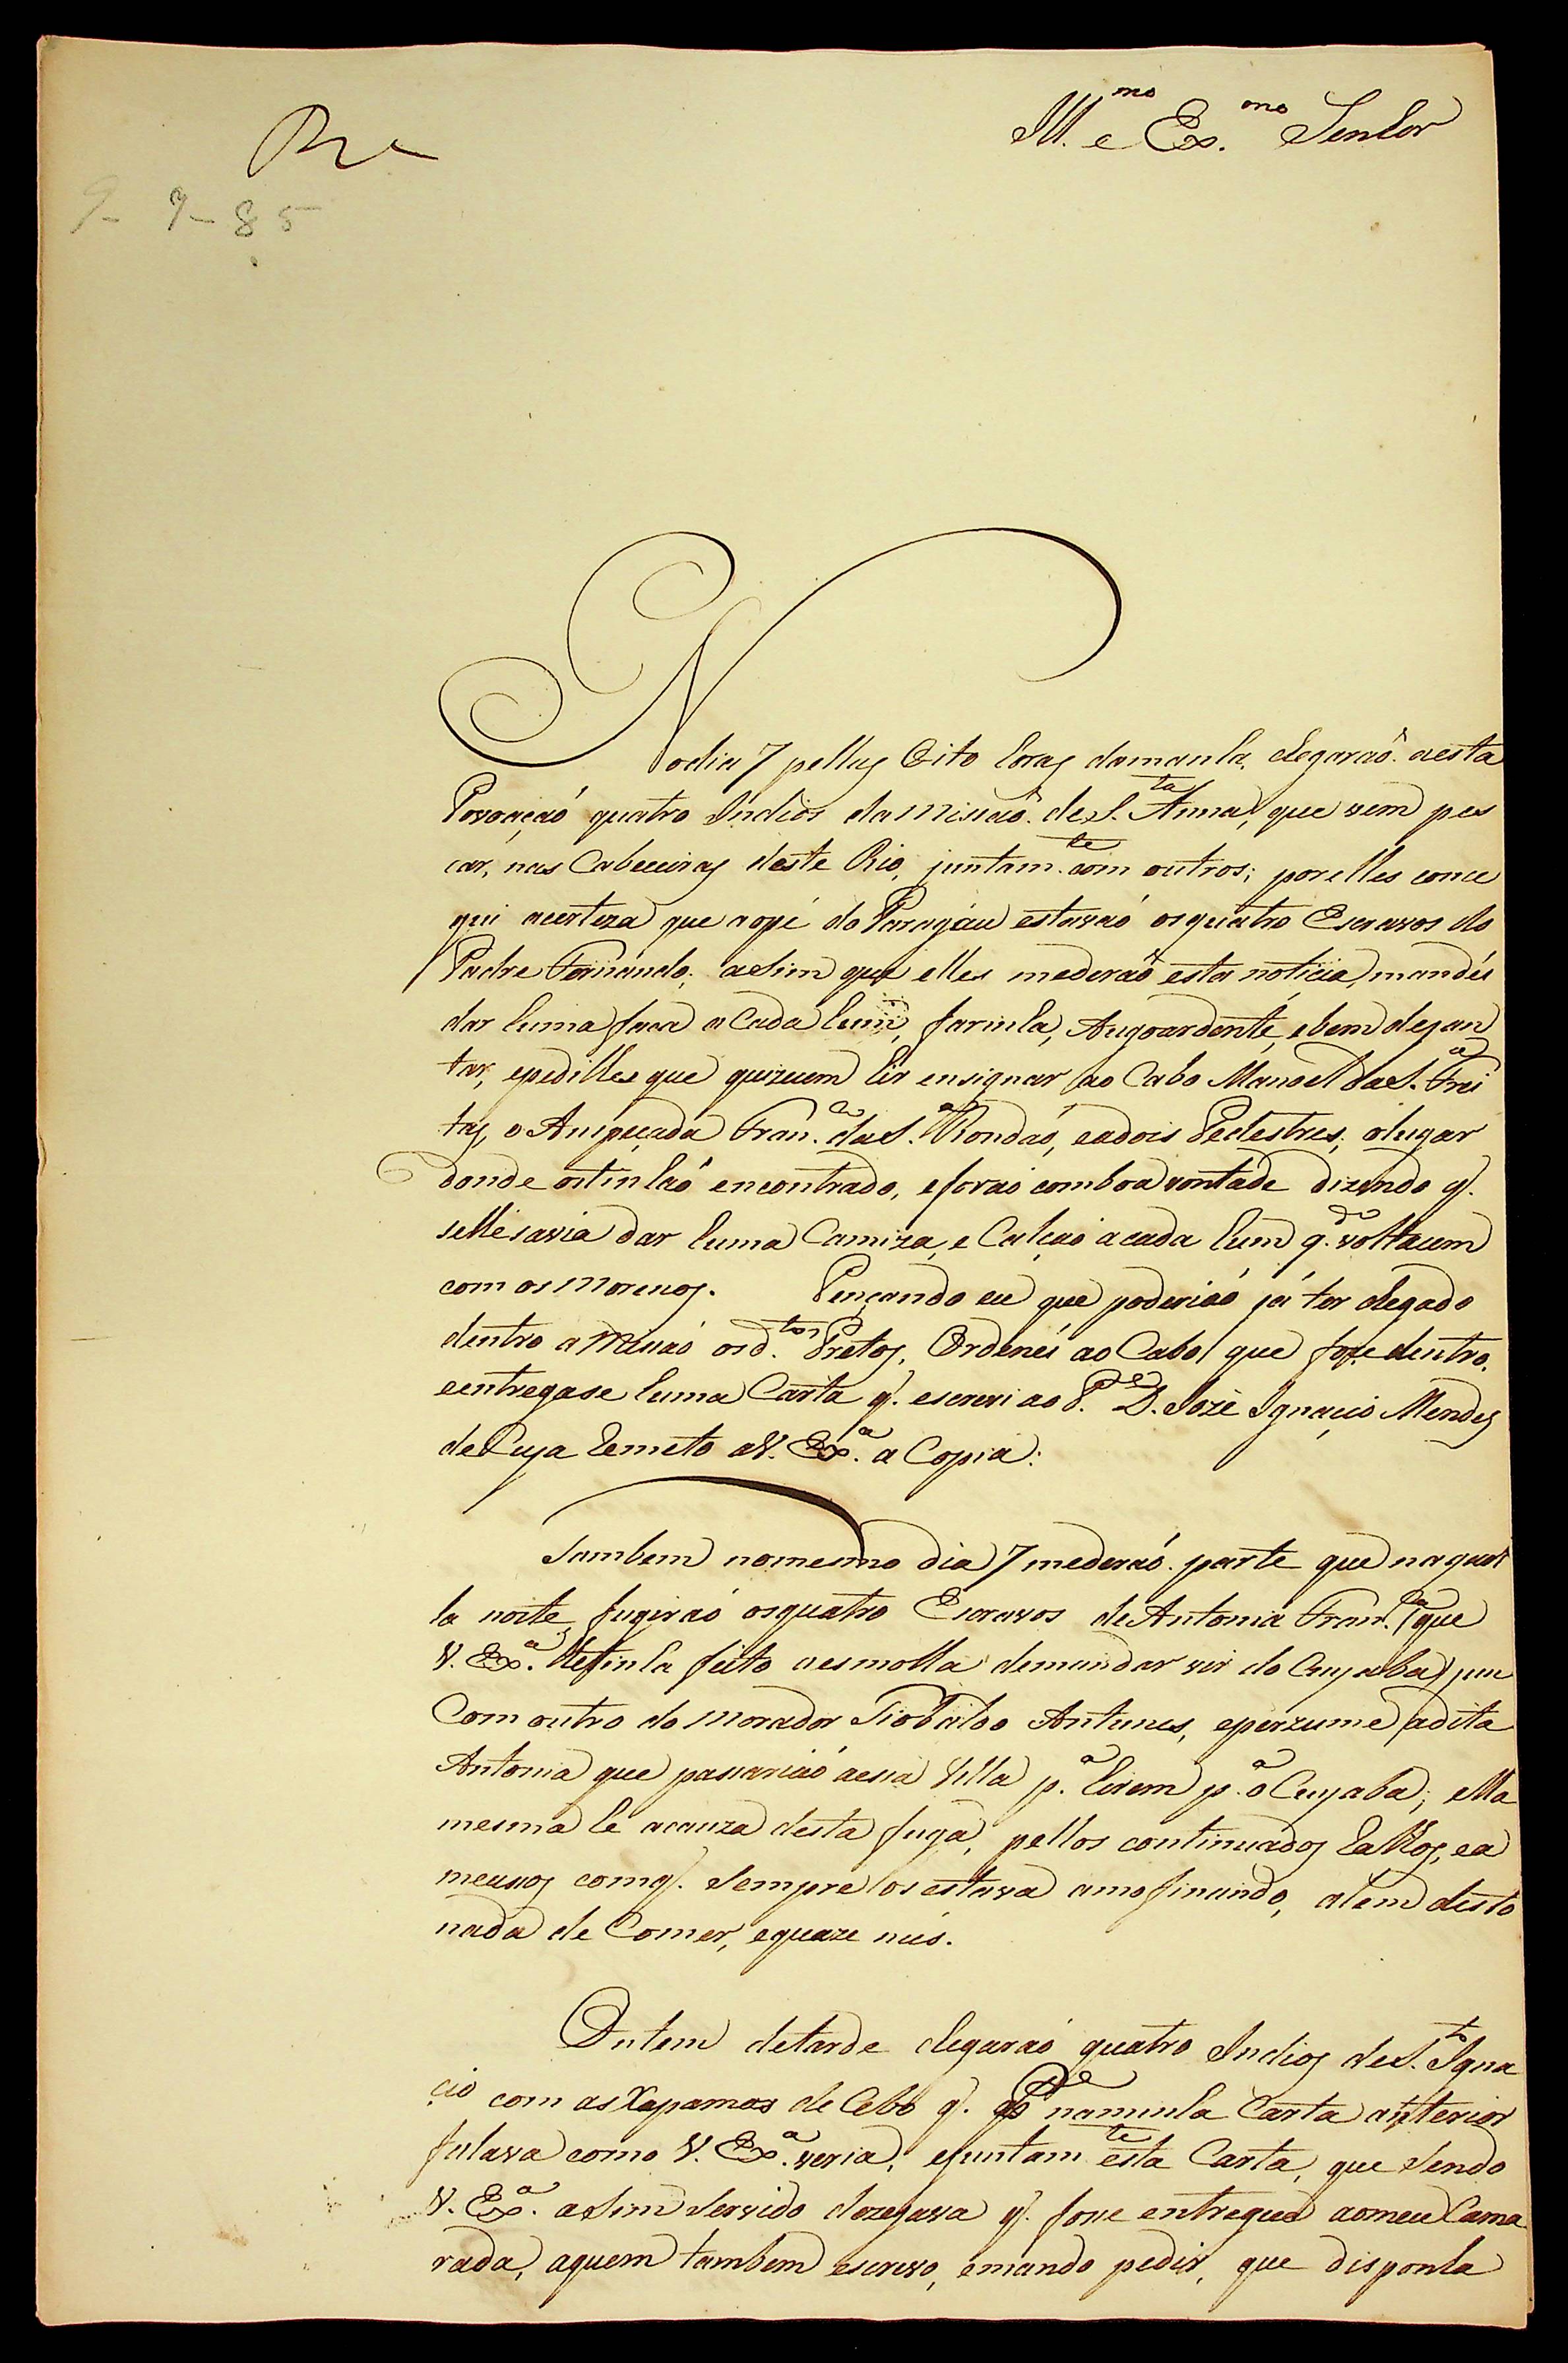 Ill.mo e Ex.mo Senhor
9-9-85
No dia 7 pellas Oito horas damanha, chegaraõ aesta
Povoaçaó quatro Indios da Missaõ de S.ta Anna, que vem pes
car, nas Cabeceiras deste Rio, juntam.te com outros; por elles conce
gui acerteza que aopé do Paragáu estavaó osquatro Escravos do
Padre Fernando; asim que elles mederaõ esta noticia, mandei
dar huma faca a Cada hum, farinha, Augoardente, ebem dejan
tar, epedilhes que quizecem hir ensignar ao Cabo Manoel da S.a Frei
tas, o Anspeçada Fran.co da S.a Rondaó, eadois Pedestres, olugar
donde ostinhaõ encontrado, eforaó comboa vontade dizendo q.
selhesavia dar huma Camiza, e Calçaó acada hum q.do voltacem
com os Morenos. Pençando eu que poderiaó já ter chegado
dentro a Missaó osd.tos Pretos, Ordenei ao Cabo que fose dentro,
eentregase huma Carta q. escrevi ao P.e D. Joze Ignaçio Mendes
de Cuja Remeto aV. Ex.a a Copia:
Tambem nomesmo dia 7 mederaó parte que naquel
la noite, fugiraó osquatro Escravos de Antonia Fran.ca (que
V. Ex.a lhetinha feito aesmolla demandar vir do Cuyaba) jun
Com outro do Morador Tiobaldo Antunes, eperzume adita
Antonia que pasariaó aesa Villa p.a hirem p.a o Cuyaba; ella
mesma he acauza desta fuga, pellos continuados Ralhos, ea
meuços comq. Sempre os estava amofinando, alem desto
nada de Comer, equaze nús.
Ontem detarde chegaraó quatro Indios de S.to Igna
çio com as Xapamas de Cebo q. naminha Carta anterior
falava como V. Ex.a veria; ejuntam.te esta Carta, que Sendo
V. Ex.a asim Servido dezejava q. fose entregue aomeu Cama
rada, aquem tambem escrevo, emando pedir, que disponha